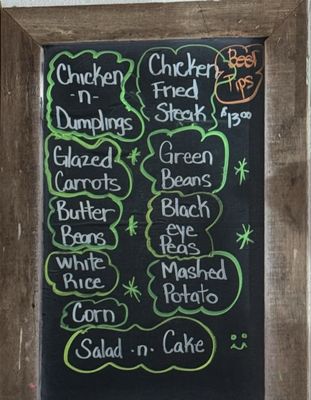 Chicken
-n-
Dumplings
Chicken
Fried
Steak
Beef
Tips
$13.00
Glazed
Carrots
Green
Beans
Butter
Beans
Black
eye
Peas
White
Rice
Mashed
Potato
Corn
Salad -n- Cake